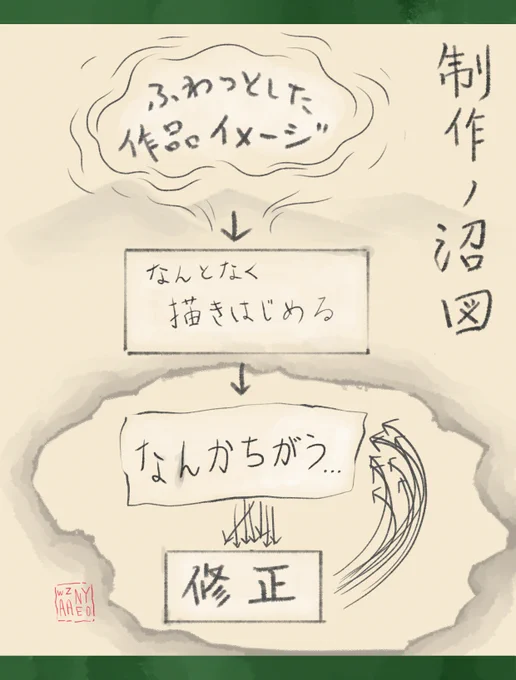 制作ノ沼図
ふわっとした
作品イメージ
なんとなく
描きはじめる
なんかちがう...
修正